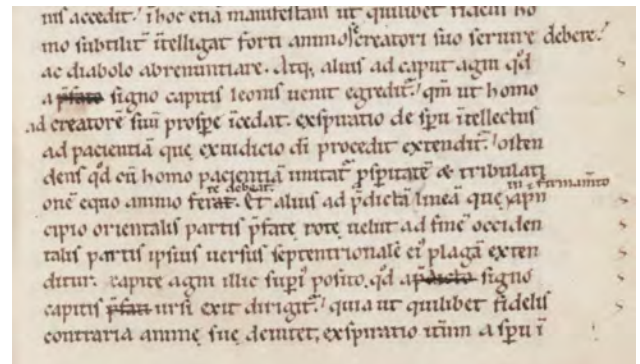 nis accedit. i hoc etiā manifestans ut quilibet fidelis ho
mo subtilit̄ ītelligat forti animo se creatori suo seruire debere.
ac diabolo abrenuntiare. Atq; alius ad caput agni qd̄
a p̄fato signo capitis leonis uenit egredit̄. qm̄ ut homo
ad creatorē suū prospe īcedat. exspiratio de spū ītellectus
ad pacientiā que ex iudicio dī procedit extendit̄. osten
dens qd̄ cū homo pacientiā imitat̄ pspitatē & tribulati
onē equo animo ferat. re debeat. Et alius ad p̄dictā lineā que in firmamto a pn
cipio orientalis partis p̄fate rote uelut ad finē occiden
talis partis ipsius uersus septentrionalē ei plagā exten
ditur. capite agni illic supi posito. qd̄ a p̄dicto signo
capitis p̄fati ursi exit dirigit̄. quia ut quilibet fidelis
contraria anime sue deuitet, exspiratio itm a spū ī